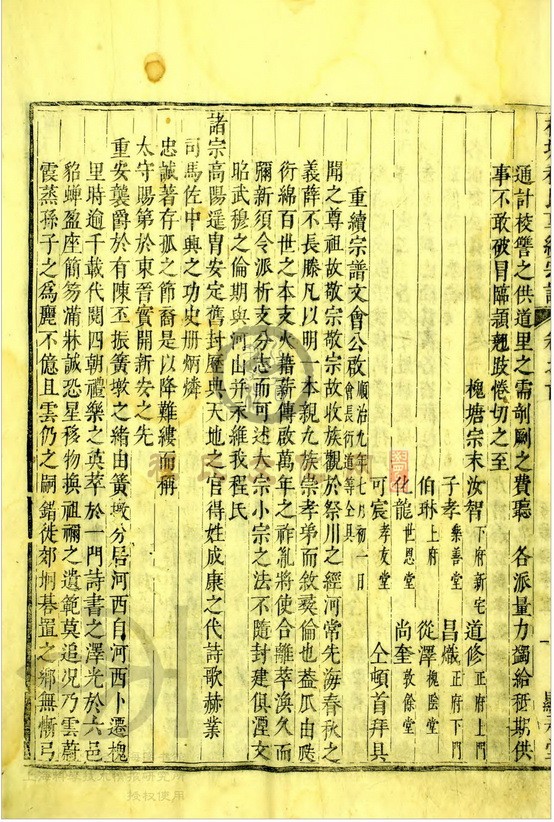 通計棱讐之供道里之需剞劂之費聽　各派量力獨給秪期供
事不敢破冒臨頴翹跂惓切之至
槐塘宗末汝智下府新宅道修正府上門
子孝樂善堂昌熾正府下門
伯琳上府從澤槐隂堂
化龍世恩堂尚奎敦餘堂
可宸孝友堂仝頓首拜具
重續宗譜文會公啟順治九年七月初一日會長衍道等仝具
聞之尊祖故敬宗敬宗故收族觀於祭川之經河常先海春秋之
義薛不長滕凡以明一本親九族崇孝弟而敘彛倫也葢瓜由瓞
衍綿百世之本支火藉薪傳啟萬年之祚胤將使合離萃渙久而
彌新須令派析支分忞而可述大宗小宗之法不隨封建俱湮文
昭武穆之倫期與河山并永維我程氏
諸宗高陽遥胄安定舊封歷典天地之官得姓成康之代詩歌赫業
司馬佐中興之功史册炳燐
忠誠著存孤之節裔是以降難縷而稱
太守賜第於東晉實開新安之先
重安襲爵於有陳丕振簧墩之緒由簧墩分居河西自河西卜遷槐
里時逾千載代閱四朝禮樂之英萃於一門詩書之澤光於六邑
貂蟬盈座簡笏滿牀誠恐星移物換祖禰之遺範莫追况乃雲蔚
霞蒸孫子之為麗不億且雲仍之嗣錯徙郊坰棊置之鄉無慚弓
授权使用